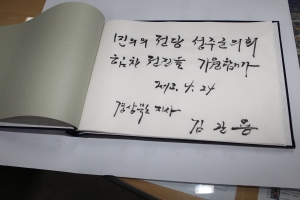 민의의 전당 성주군의회
힘찬 전진을 기원합니다
2013. 4. 24
경상북도지사
김관용